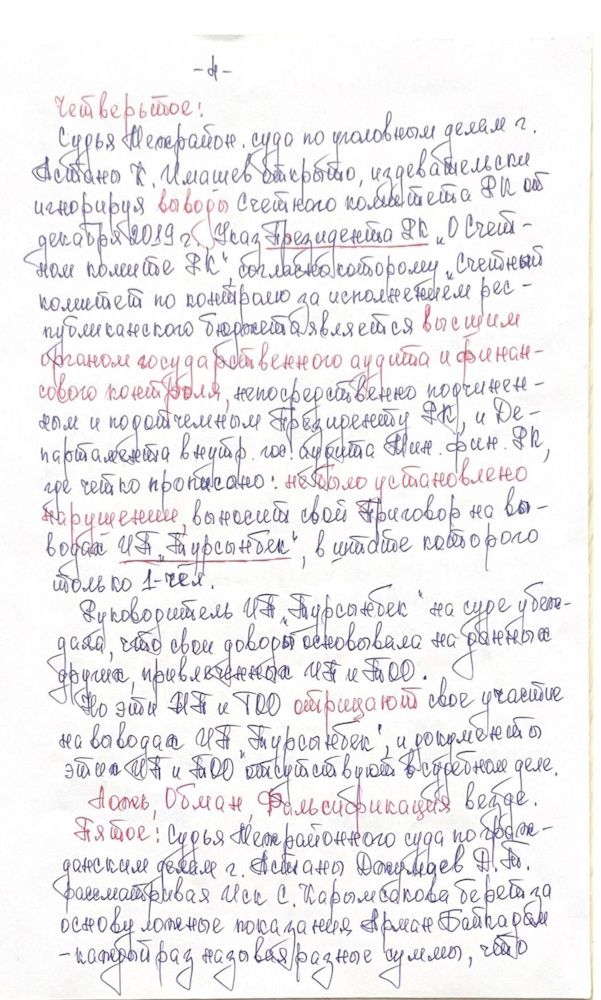 -4-
Четвертое:
Судья Межрайон. суда по уголовным делам г.
Астаны К. Имашев открыто, издевательски
игнорируя выводы Счетного комитета РК от
декабря 2019 г. Указ Президента РК „О Счет-
ном комите РК", согласно которому „Счетный
комитет по контролю за исполнением рес-
публиканского бюджета является высшим
органом государственного аудита и финан-
сового контроля, непосредственно подчинен-
ным и подотчетным Президенту РК, и Де-
партамента внутр. гос. аудита Мин. фин. РК,
где четко прописано: не было установлено
нарушение, выносит свой Приговор на вы-
водах ИП „Турсынбек", в штате которого
только 1-чел.
Руководитель ИП „Турсынбек" на суде убеж-
дала, что свои доводы основывала на данных
других, привлеченных ИП и ТОО.
Но эти ИП и ТОО отрицают свое участие
на выводах ИП „Турсынбек", и документы
этих ИП и ТОО отсутствуют в судебном деле.
Ложь, Обман, Фальсификация везде.
Пятое: Судья Межрайонного суда по граж-
данским делам г. Астаны Джумаев Д.Т.
рассматривая Иск С. Карымсакова берет за
основу ложные показания Арман Байкадам
-каждый раз называя разные суммы, что